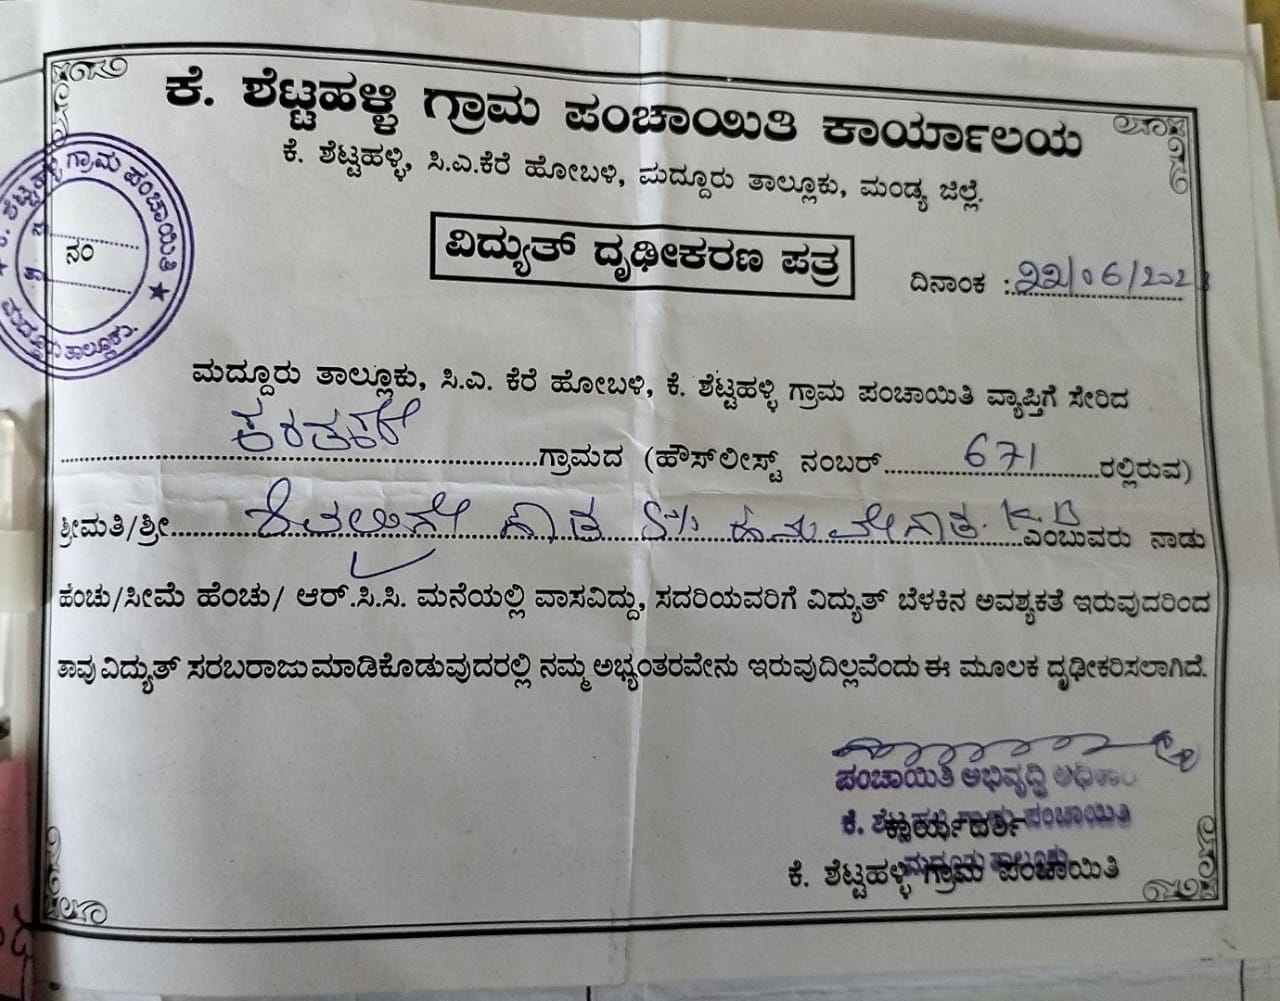 ಕೆ. ಶೆಟ್ಟಹಳ್ಳಿ ಗ್ರಾಮ ಪಂಚಾಯಿತಿ ಕಾರ್ಯಾಲಯ
ಕೆ. ಶೆಟ್ಟಹಳ್ಳಿ, ಸಿ.ಎ.ಕೆರೆ ಹೋಬಳಿ, ಮದ್ದೂರು ತಾಲ್ಲೂಕು, ಮಂಡ್ಯ ಜಿಲ್ಲೆ.
ಕೆ. ಶೆಟ್ಟಹಳ್ಳಿ ಗ್ರಾಮ ಪಂಚಾಯಿತಿ
ನಂ
ಮದ್ದೂರು ತಾಲ್ಲೂಕು.
ವಿದ್ಯುತ್ ದೃಢೀಕರಣ ಪತ್ರ
ದಿನಾಂಕ :
ಮದ್ದೂರು ತಾಲ್ಲೂಕು, ಸಿ.ಎ. ಕೆರೆ ಹೋಬಳಿ, ಕೆ. ಶೆಟ್ಟಹಳ್ಳಿ ಗ್ರಾಮ ಪಂಚಾಯಿತಿ ವ್ಯಾಪ್ತಿಗೆ ಸೇರಿದ
ಗ್ರಾಮದ (ಹೌಸ್‌ಲೀಸ್ಟ್ ನಂಬರ್ 671 ರಲ್ಲಿರುವ)
ಶ್ರೀಮತಿ/ಶ್ರೀ S/o K.B ಎಂಬುವರು ನಾಡು
ಹಂಚು/ಸೀಮೆ ಹೆಂಚು/ ಆರ್.ಸಿ.ಸಿ. ಮನೆಯಲ್ಲಿ ವಾಸವಿದ್ದು, ಸದರಿಯವರಿಗೆ ವಿದ್ಯುತ್ ಬೆಳಕಿನ ಅವಶ್ಯಕತೆ ಇರುವುದರಿಂದ
ತಾವು ವಿದ್ಯುತ್ ಸರಬರಾಜು ಮಾಡಿಕೊಡುವುದರಲ್ಲಿ ನಮ್ಮ ಅಭ್ಯಂತರವೇನು ಇರುವುದಿಲ್ಲವೆಂದು ಈ ಮೂಲಕ ದೃಢೀಕರಿಸಲಾಗಿದೆ.
ಪಂಚಾಯಿತಿ ಅಭಿವೃದ್ಧಿ
ಕೆ. ಶೆಟ್ಟಹಳ್ಳಿ ಗ್ರಾಮ ಪಂಚಾಯಿತಿ
ಕಾರ್ಯದರ್ಶಿ
ಮದ್ದೂರು ತಾಲ್ಲೂಕು
ಕೆ. ಶೆಟ್ಟಹಳ್ಳಿ ಗ್ರಾಮ ಪಂಚಾಯಿತಿ